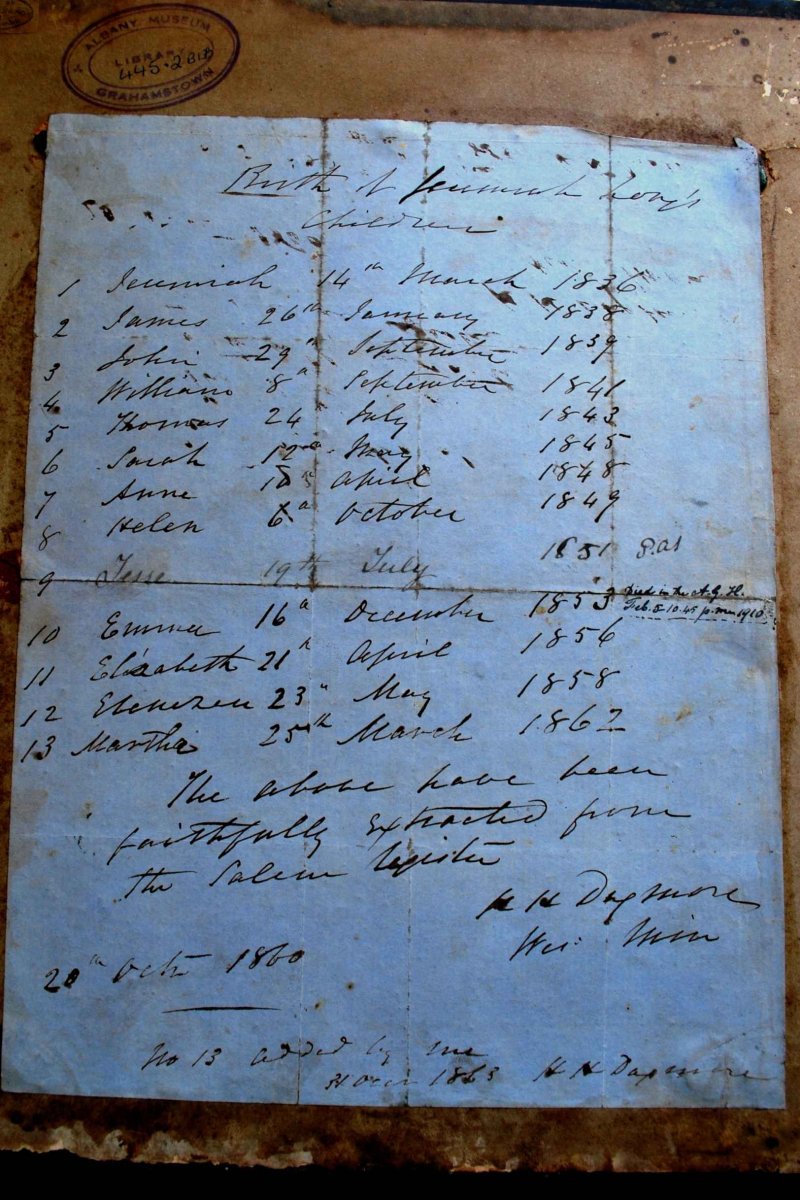 ALBANY MUSEUM
LIBRARY
445.2 BIB
GRAHAMSTOWN
Birth of Jeremiah Long's
Children
1 Jeremiah 14th March 1836
2 James 26th January 1838
3 John 29th September 1839
4 William 8th September 1841
5 Thomas 24th July 1843
6 Sarah 12th May 1845
7 Anne April 1848
8 Helen 6th October 1849
9 Jesse 19th July 1851
10 Emma 16th December 1853 Died in the A.G.H.
Feb. 5 10.45 p.m. 1910
11 Elizabeth 21st April 1856
12 Ebenezer 23rd May 1858
13 Martha 25th March 1862
The above have been
faithfully extracted from
the Salem register
H H Dugmore
Wes. Min
Octr 1860
No 13 added by me
1863 H H Dugmore